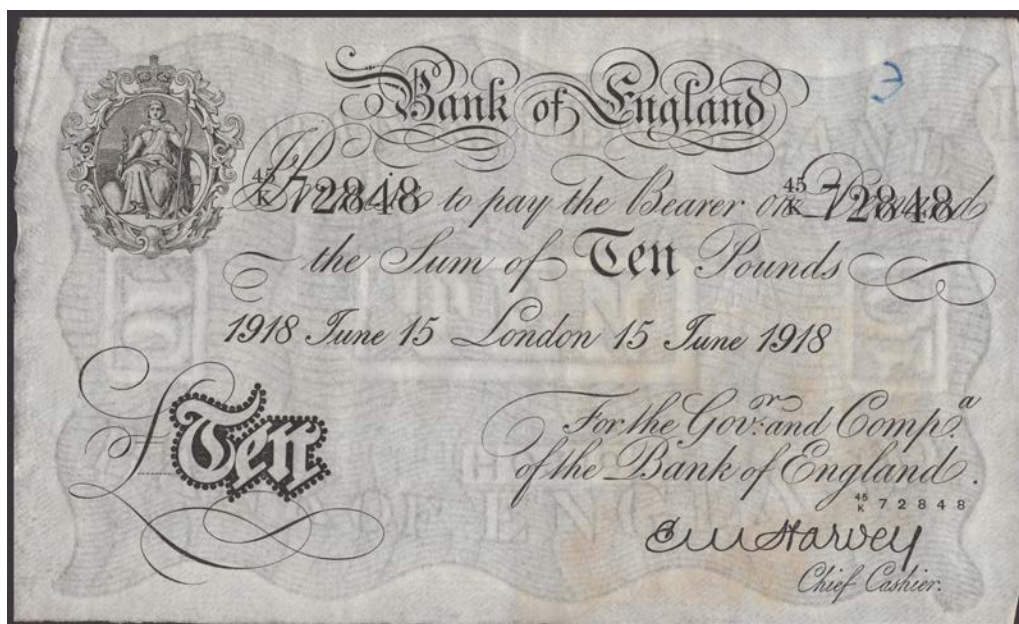 Bank of England
45/K 72848 to pay the Bearer on 45/K 72848
the Sum of Ten Pounds
1918 June 15 London 15 June 1918
£Ten
For the Gov:r and Comp.a
of the Bank of England.
45/K 72848
E M Harvey
Chief Cashier.